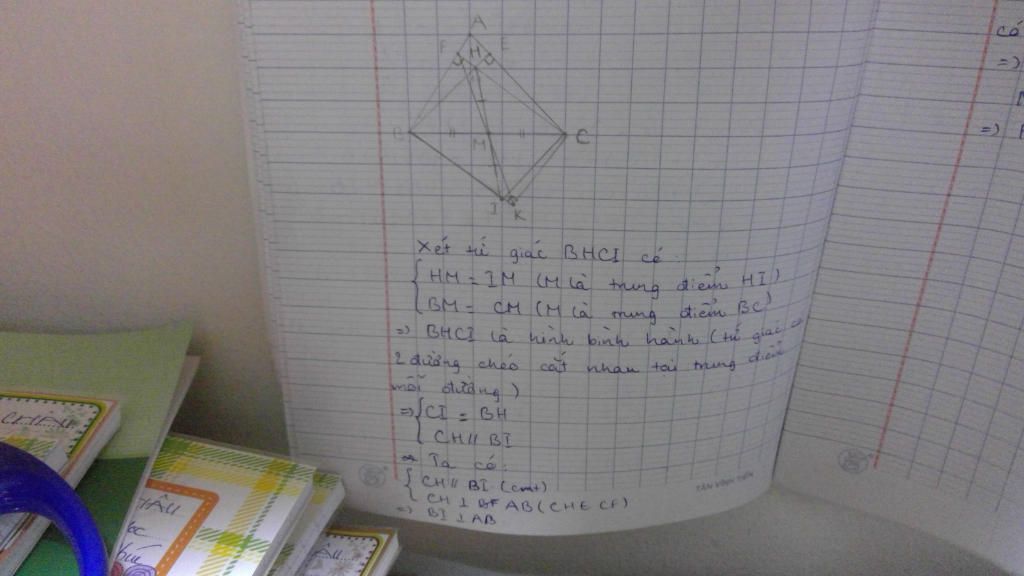 A
F
H
E
B
M
C
I
K
có
=)
=)
Xét tứ giác BHCI có:
HM = IM (M là trung điểm HI)
BM = CM (M là trung điểm BC)
=> BHCI là hình bình hành (tứ giác có
2 đường chéo cắt nhau tại trung điểm
mỗi đường)
=> CI = BH
CH // BI
Ta có:
CH // BI (cmt)
CH ⊥ AB (CH ∈ CF)
=> BI ⊥ AB
TÂN VĨNH TIẾN